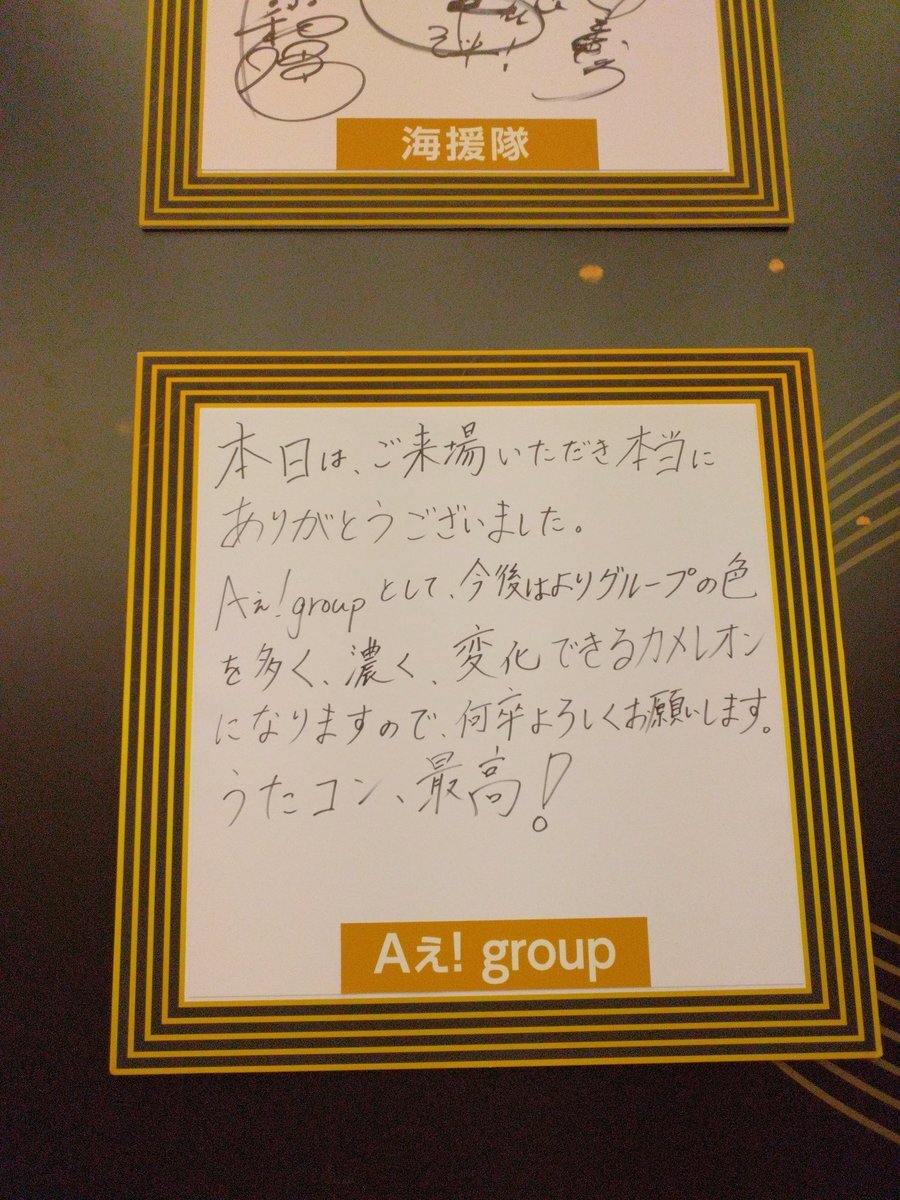 海援隊
本日は、ご来場いただき本当に
ありがとうございました。
Aぇ!groupとして、今後はよりグループの色
を多く、濃く、変化できるカメレオン
になりますので、何卒よろしくお願いします。
うたコン、最高!
Aぇ! group